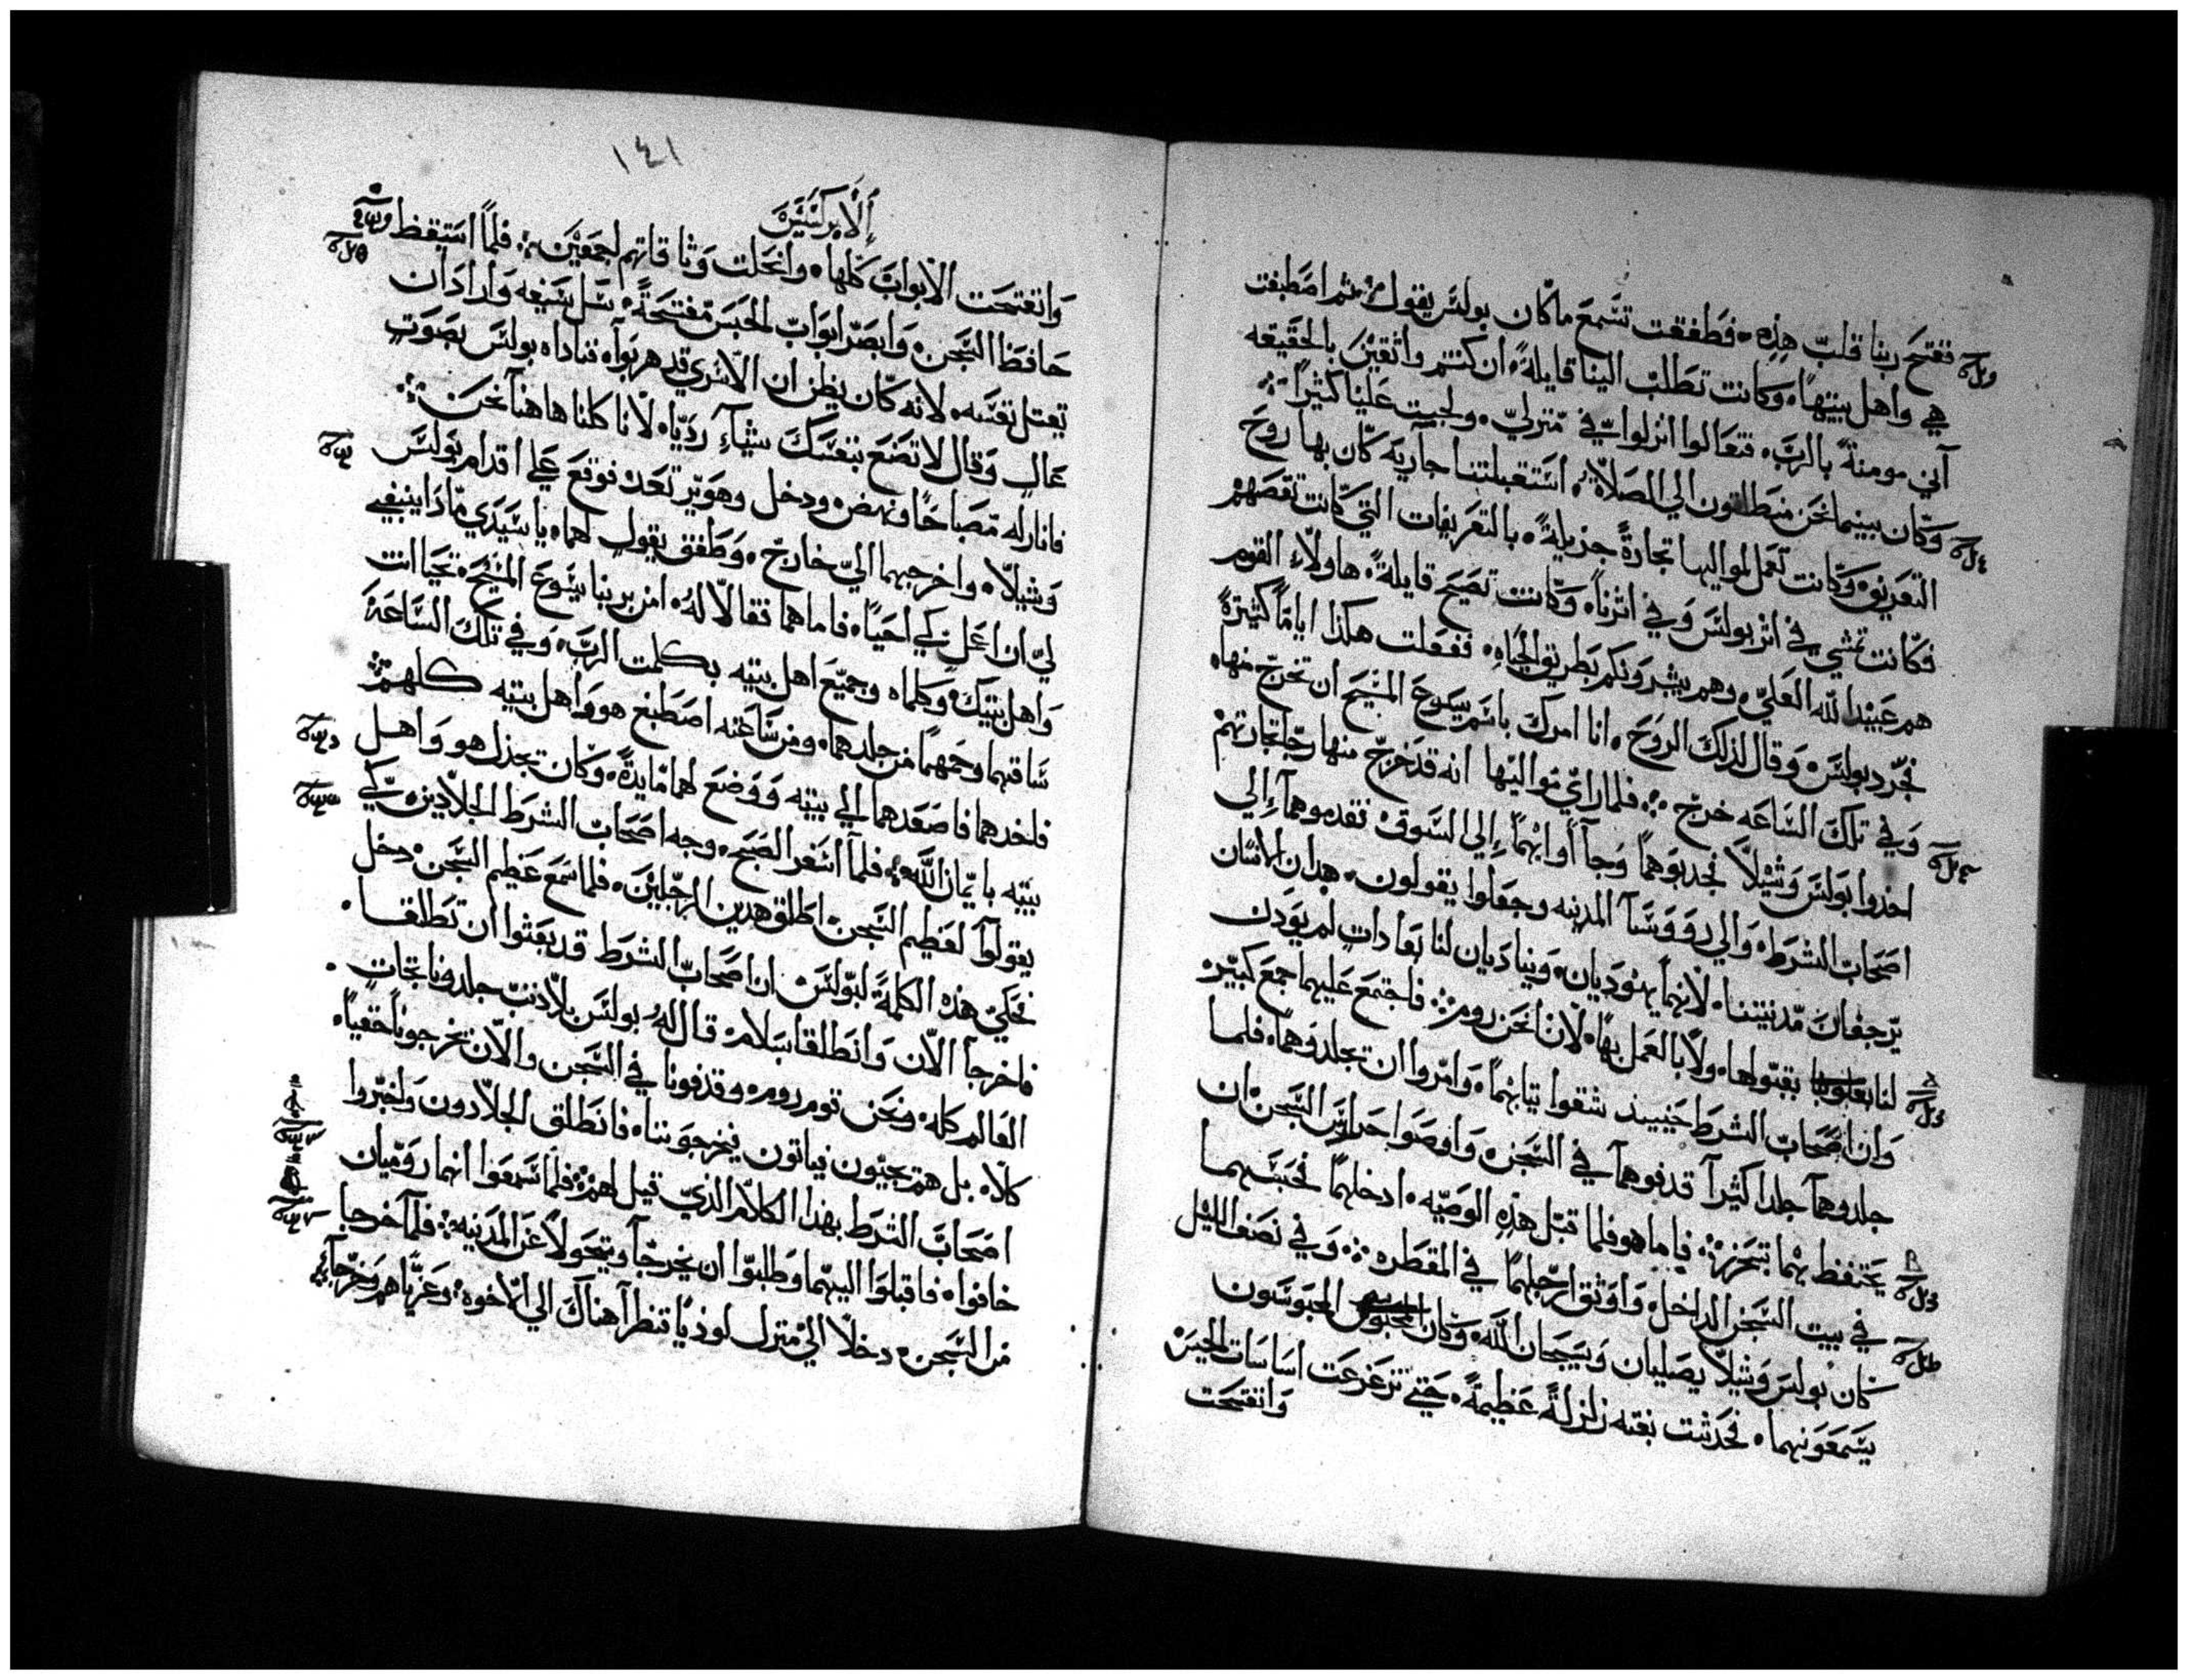 ففتح ربنا قلب هذه فطفقت تسمع ما كان بولس يقول ثم اصطبغت
هي واهل بيتها وكانت تطلب الينا قايلة ان كنتم واثقين بالحقيقه
اني مومنة بالرب فتعالوا انزلوا في منزلي ولجبت علينا كثيرا
وكان بينما نحن منطلقون الي الصلاة استقبلتنا جاريه كان بها روح
التعريف وكانت تعمل لمواليها تجارة جزيلة بالتعريفات التي كانت تقصهم
فكانت تمشي في اثر بولس وفي اثرنا وكانت تصيح قايلة هاولاء القوم
هم عبيد الله العلي وهم يبشرونكم بطريق الحياه ففعلت هكذا اياما كثيرة
فجرد بولس وقال لذلك الروح انا امرك باسم يسوع المسيح ان تخرج منها
وفي تلك الساعه خرج فلما راي مواليها انه قد خرج منها رجا تجارتهم
اخذوا بولس وشيلا فجدبوهما وجاأوا بهما إلي السوق فقدموهما إلي
اصحاب الشرط والي رووسا المدينه وجعلوا يقولون هدان الانسان
يرجفان مدينتنا لانهما يهوديان وينادیان لنا بعادات لم يودن
لنا بقبولها ولا بالعمل بها لاننا نحن روم فاجتمع عليهما جمع كبير
وان اصحاب الشرط حينيد شقوا تيابهما وامروا ان تجلدوهما فلما
جلدوهما جلدا كثيرا قدفوهما في السجن واوصوا حراس السجن ان
يحتفظ بهما بتحرز فاما هو فلما قبل هذه الوصيه ادخلهما فحبسهما
في بيت السجن الداخل واوثق ارجلهما في المقطره وفي نصف الليل
كان بولس وشيلا يصليان ويسبحان الله وكان المحبوسون
يسمعونهما فحدثت بغته زلزلة عظيمة حتي تزعزعت اساسات الحبس
وانفتحت
١٤١
الابركسيس
وانفتحت الابواب كلها وانحلت وثاقاتهم اجمعين فلما استيقظ
حافظ السجن وابصر ابواب الحبس مفتحة سل سيفه واراد ان
يقتل نفسه لانه كان يظن ان الاسري قد هربوا فناداه بولس بصوت
عال وقال لا تصنع بنفسك شيأ رديا لانا كلنا هاهنا نحن
فانار له مصباحا ونهض ودخل وهو يرتعد فوقع علي اقدام بولس
وشيلا واخرجهما الي خارج وطفق يقول لهما يا سيدي ماذا ينبغي
لي ان اعمل كي احيا فاما هما فقالا له امن بربنا يسوع المسيح تحيا انت
واهل بيتك وكلماه وجميع اهل بيته بكلمت الرب وفي تلك الساعة
ساقهما وحمهما من جلدهما ومن ساعته اصطبغ هو واهل بيته كلهم
فاخدهما فاصعدهما الي بيته ووضع لهما مايدة وكان يجذل هو واهل
بيته بايمان الله فلما اسفر الصبح وجه اصحاب الشرط الجلادين كي
يقولوا لعظيم السجن اطلق هدين الرجلين فلما سمع عظيم السجن دخل
فحكي هذه الكلمة لبولس ان اصحاب الشرط قد بعثوا ان تطلقا
فاخرجا الان وانطلقا بسلام قال له بولس بلا دنب جلدونا تجات
العالم كله ونحن قوم روم وقدفونا في السجن والان يخرجونا خفيا
كلا بل هم يجيون فياتون يخرجوننا فانطلق الجلادون واخبروا
اصحاب الشرط بهذا الكلام الذي قيل لهم فلما سمعوا انهما روميان
خافوا فاقبلوا اليهما وطلبوا ان يخرجا ويتحولا عن المدينه فلما خرجا
من السجن دخلا الي منزل لوذيا فنظرا هناك الي الاخوه وعزياهم وخرجا